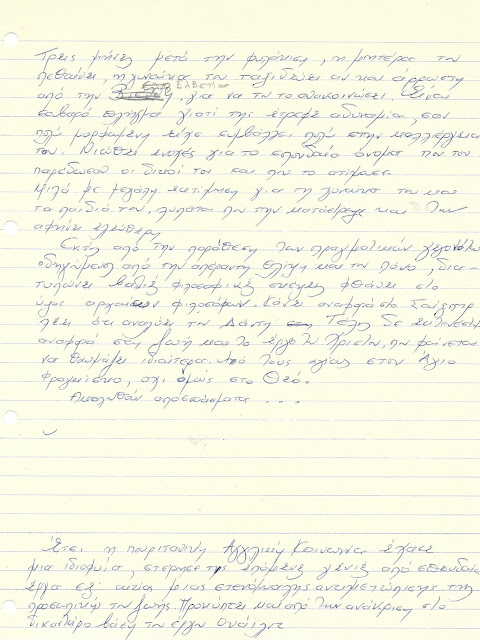 Τρεις μήνες μετά την φυλάκιση, η μητέρα του
πεθαίνει, η γυναίκα του ταξιδεύει αν και άρρωστη
από την Ελβετία, για να του το ανακοινώσει. Είναι
σοβαρό πλήγμα γιατί της έτρεφε αδυναμία, σαν
πολύ μορφωμένη είχε συμβάλλει πολύ στην καλλιέργεια
του. Νιώθει ενοχές για το σπουδαίο όνομα που του
παρέδωσαν οι δικοί του και που το ατίμασε.
Μιλά με μεγάλη εκτίμηση για τη γυναίκα του και
τα παιδιά του, λυπάται που την κατάστρεψε και την
αφήνει ελεύθερη.
Εκτός από την παράθεση των πραγματικών γεγονότων
οδηγούμενος από την απέραντη θλίψη και τον πόνο, δια-
τυπώνει βαθιές φιλοσοφικές σκέψεις φθάνει στο
ύψος αρχαίων φιλοσόφων. Κάνει αναφορά στο Σαίξπηρ
λέει ότι αναλύει την Δάντη Τέλος δε
αναφορά στη ζωή και το έργο του Χριστού, που φαίνεται
να θαυμάζει ιδιαίτερα. Από τους στον Άγιο
Φραγκίσκο, όχι όμως στο Θεό.
Ακολουθούν αποσπάσματα . . .
Έτσι η πουριτανική Αγγλική Κοινωνία έχασε
μια ιδιοφυία, στέρησε τις επόμενες γενιές από σπουδαία
έργα εξ' αιτίας μιας στενόμυαλης αντιμετώπισης της
προσωπικής του ζωής. Προκύπτει και από την ανάκριση στο
δικαστήριο βάση του έργου Ουάιλντ